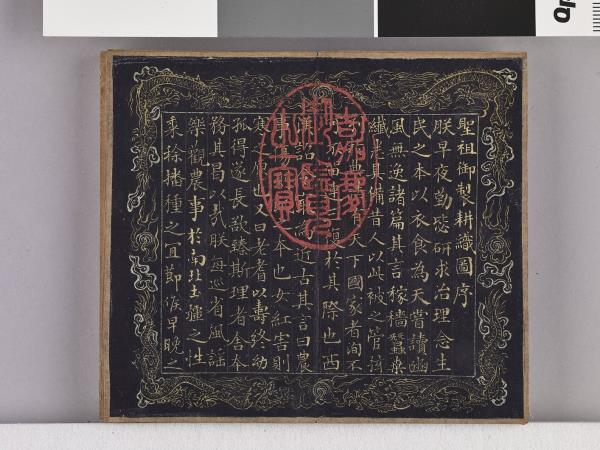 聖祖御製耕織圖序
朕早夜勤毖研求治理念生
民之本以衣食為天嘗讀豳
風無逸諸篇其言稼穡蠶桑
纖悉具備昔人以此被之管絃
列於典誥有天下國家者洵不
可不留連三復於其際也西
漢詔令最為近古其言曰農
事傷則饑之本也女紅害則
寒之原也又曰老耆以壽終幼
孤得遂長欲臻斯理者舍本
務其曷以哉朕每巡省風謠
樂觀農事於南北土疆之性
黍稌播種之宜節候早晚之
嘉慶御覽之寶